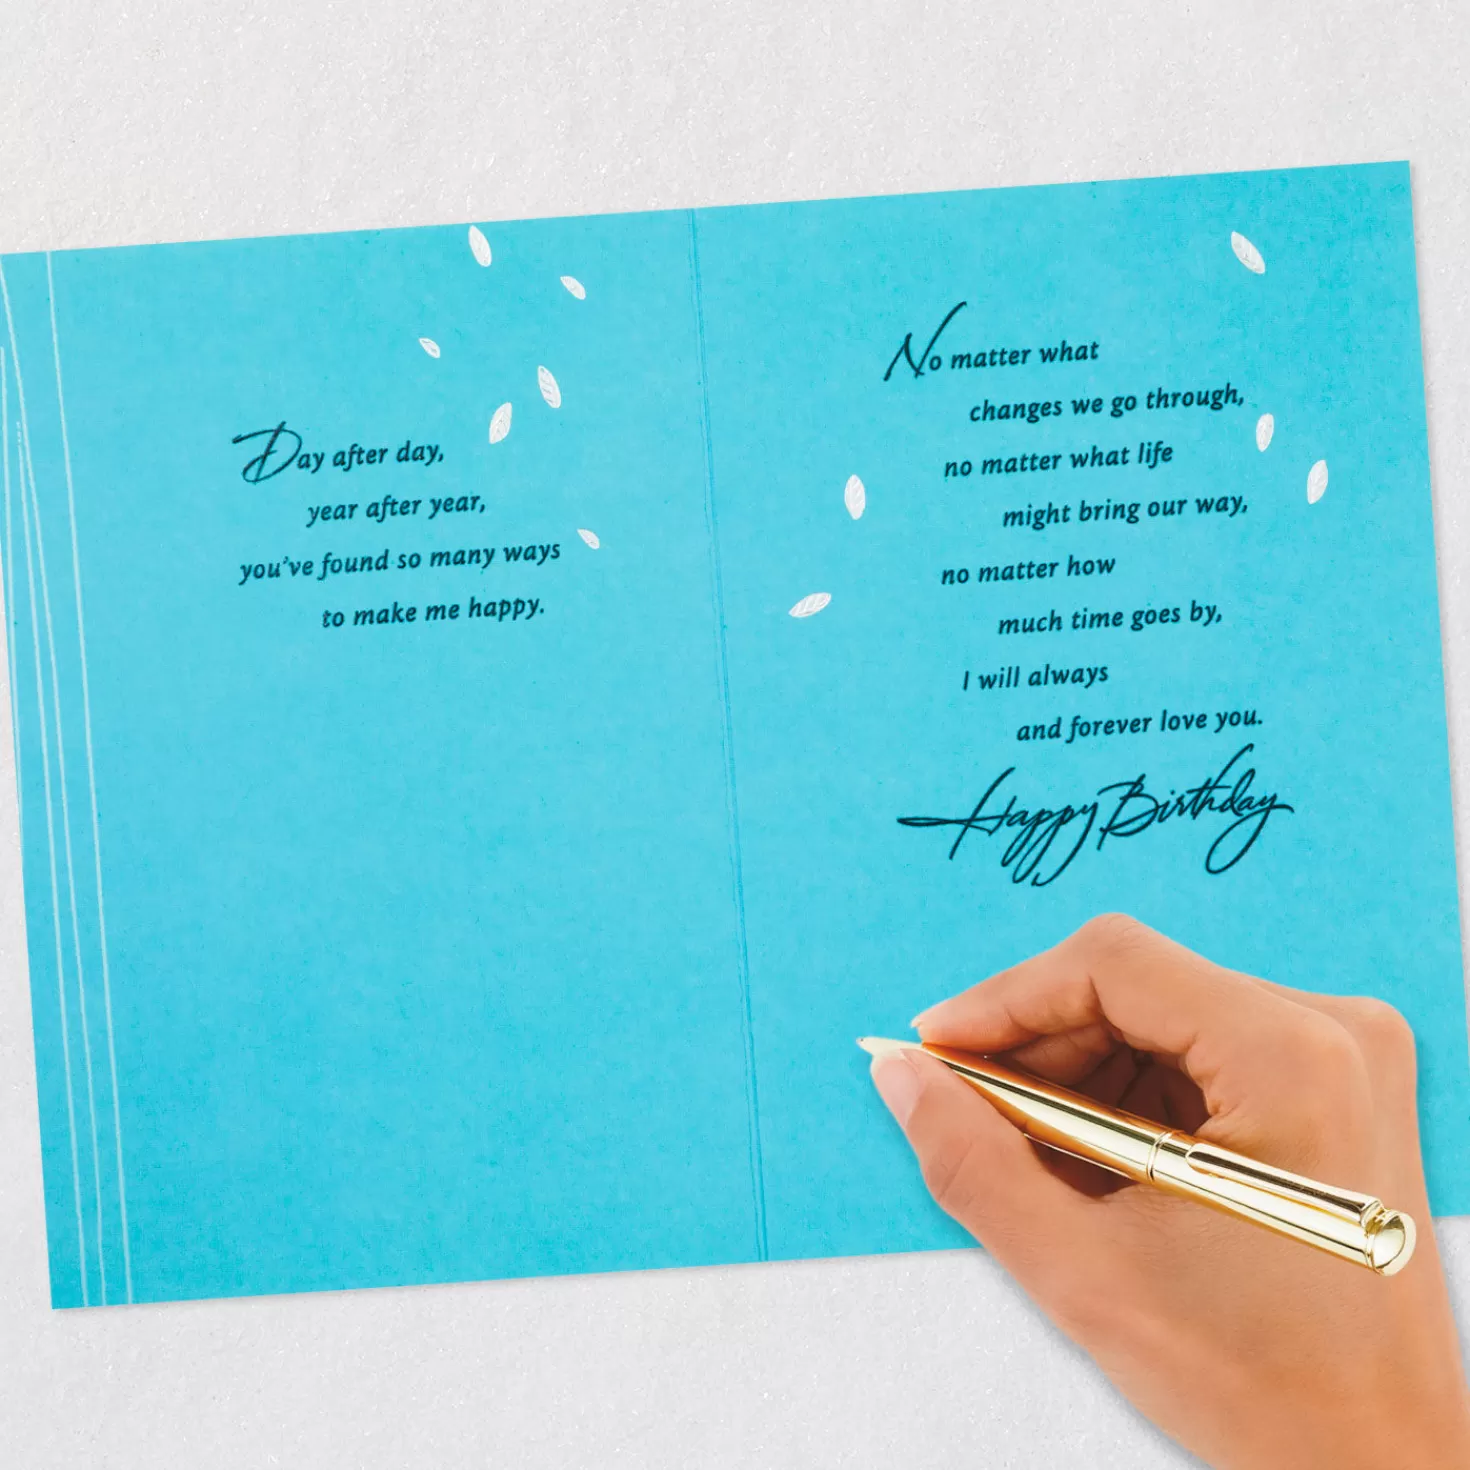 Day after day,
year after year,
you've found so many ways
to make me happy.
No matter what
changes we go through,
no matter what life
might bring our way,
no matter how
much time goes by,
I will always
and forever love you.
Happy Birthday